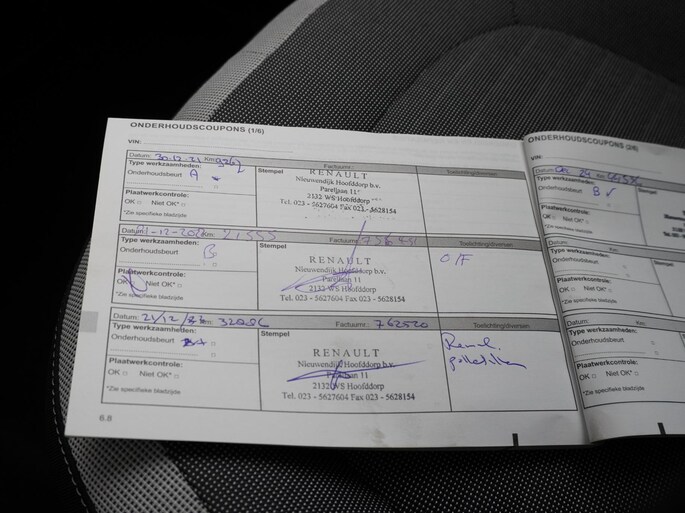 ONDERHOUDSCOUPONS (1/6)
VIN:
Datum: 30-12-21 Km: 9267 Factuurnr.: Toelichting/diversen:
Type werkzaamheden: Stempel
Onderhoudsbeurt A
RENAULT
Nieuwendijk Hoofddorp b.v.
Parellaan 11
2132 WS Hoofddorp
Tel. 023 - 5627604 Fax 023 - 5628154
Plaatwerkcontrole:
OK □ Niet OK* □
*Zie specifieke bladzijde
Datum: 1-12-2022 Km: 21555 Factuurnr.: Toelichting/diversen:
Type werkzaamheden: Stempel
Onderhoudsbeurt B
O/F
RENAULT
Nieuwendijk Hoofddorp b.v.
Parellaan 11
2132 WS Hoofddorp
Tel. 023 - 5627604 Fax 023 - 5628154
Plaatwerkcontrole:
OK □ Niet OK* □
*Zie specifieke bladzijde
Datum: 21/12/23 Km: Factuurnr.: 762520 Toelichting/diversen:
Type werkzaamheden: Stempel
Onderhoudsbeurt A
RENAULT
Nieuwendijk Hoofddorp b.v.
Parellaan 11
2132 WS Hoofddorp
Tel. 023 - 5627604 Fax 023 - 5628154
Plaatwerkcontrole:
OK □ Niet OK* □
*Zie specifieke bladzijde
6.8
ONDERHOUDSCOUPONS (2/6)
VIN:
Datum: Km:
Type werkzaamheden: Stempel
Onderhoudsbeurt B
Plaatwerkcontrole:
OK □ Niet OK* □
*Zie specifieke bladzijde
Datum: Km:
Type werkzaamheden: Stempel
Onderhoudsbeurt
Plaatwerkcontrole:
OK □ Niet OK* □
*Zie specifieke bladzijde
Datum: Km:
Type werkzaamheden: Stempel
Onderhoudsbeurt
Plaatwerkcontrole:
OK □ Niet OK* □
*Zie specifieke bladzijde